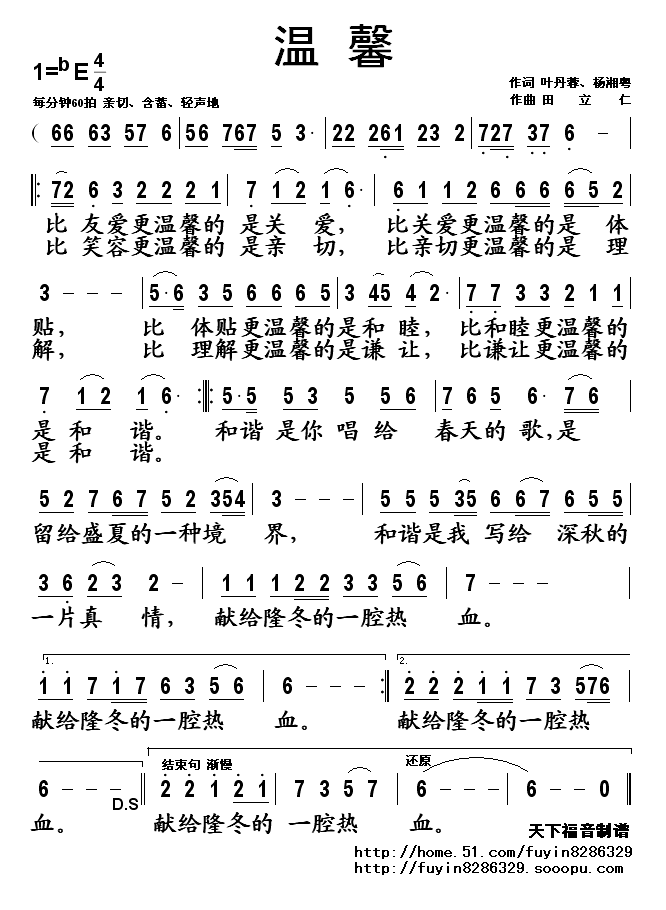 温 馨
1=ᵇE 4/4
作词 叶丹蓉、杨湘粤
每分钟60拍 亲切、含蓄、轻声地
作曲 田 立 仁
( 66 63 57 6 | 56 767 5 3· | 22 261 23 2 | 727 37 6 - |
‖: 72 6 3 2 2 2 1 | 7 1 2 1 6· | 6 1 1 2 6 6 6 6 5 2
比 友爱更温馨的 是关 爱, 比关爱更温馨的是 体
比 笑容更温馨的 是亲 切, 比亲切更温馨的是 理
3 - - - | 5·6 3 5 6 6 6 5 | 3 45 4 2· | 7 7 3 3 2 1 1
贴, 比 体贴更温馨的是和 睦, 比和睦更温馨的
解, 比 理解更温馨的是谦 让, 比谦让更温馨的
7 1 2 1 6· :‖: 5·5 5 3 5 5 6 | 7 6 5 6· 7 6 |
是 和 谐。 和谐 是你 唱 给 春天的 歌,是
是 和 谐。
5 2 7 6 7 5 2 354 | 3 - - - | 5 5 5 35 6 6 7 6 5 5
留给盛夏的一种境 界, 和谐是我 写给 深秋的
3 6 2 3 2 - | 1 1 1 2 2 3 3 5 6 | 7 - - -
一片真 情, 献给隆冬的一腔热 血。
1. 2.
1 1 7 1 7 6 3 5 6 | 6 - - - :‖ 2 2 2 1 1 7 3 576 |
献给隆冬的一腔热 血。 献给隆冬的一腔热
结束句 渐慢 还原
6 - - - ‖ 2 2 1 2 1 | 7 3 5 7 | 6 - - - | 6 - - 0 ‖
D.S
血。 献给隆冬的 一腔热 血。
天下福音制谱
http://home.51.com/fuyin8286329
http://fuyin8286329.sooopu.com